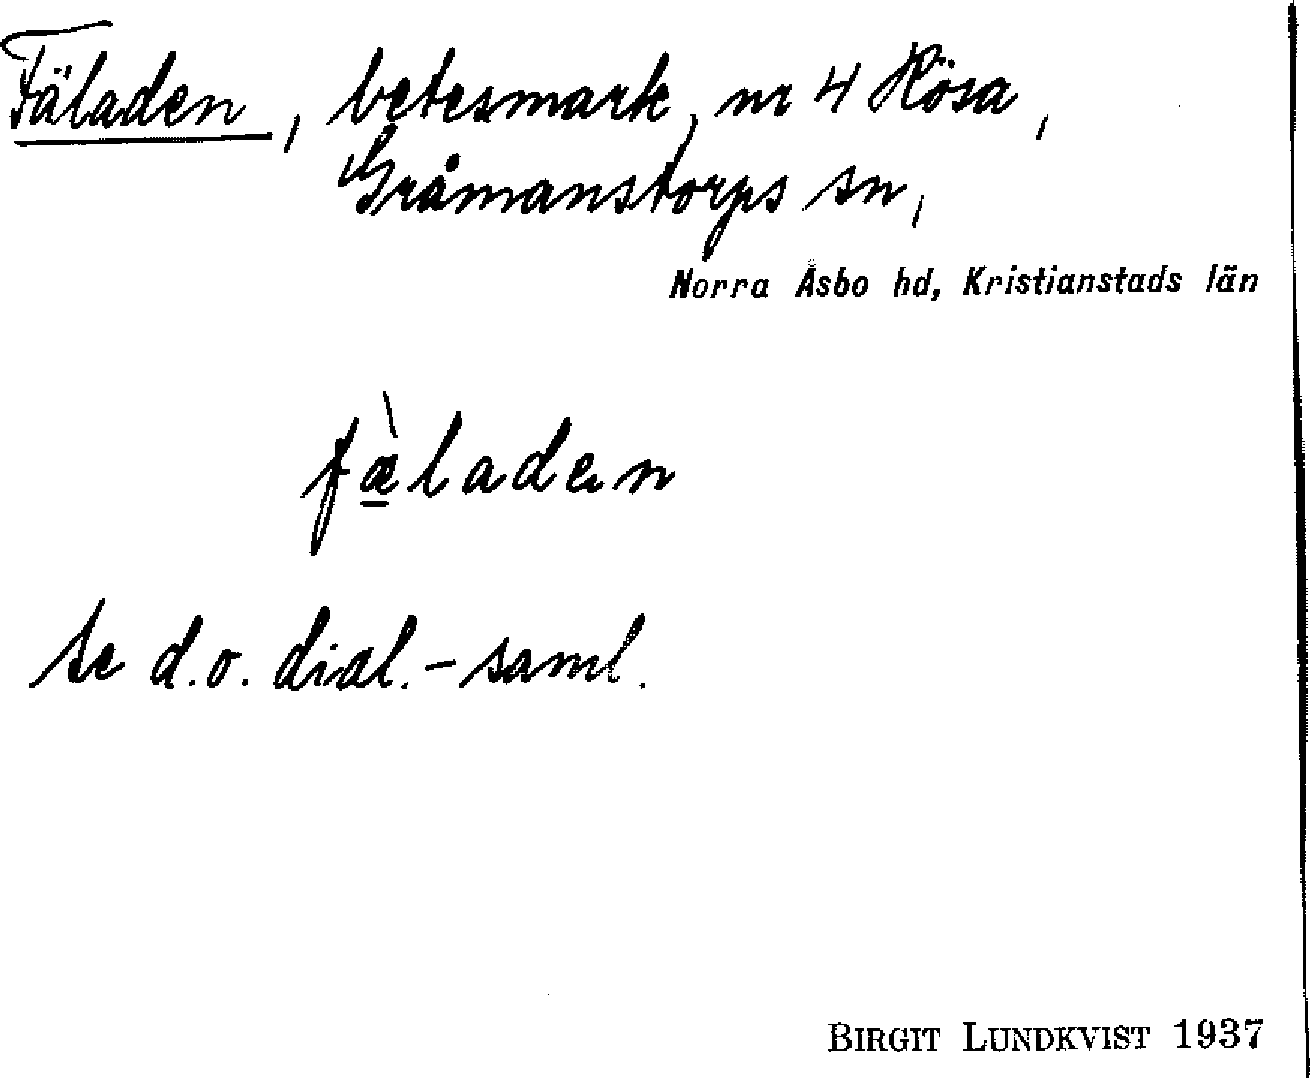 Fäladen, betesmark, nr 4 Hösa,
Gråmanstorps sn,
Norra Åsbo hd, Kristianstads län
fæ̀ladεn
Se d.o. dial.-saml.
BIRGIT LUNDKVIST 1937